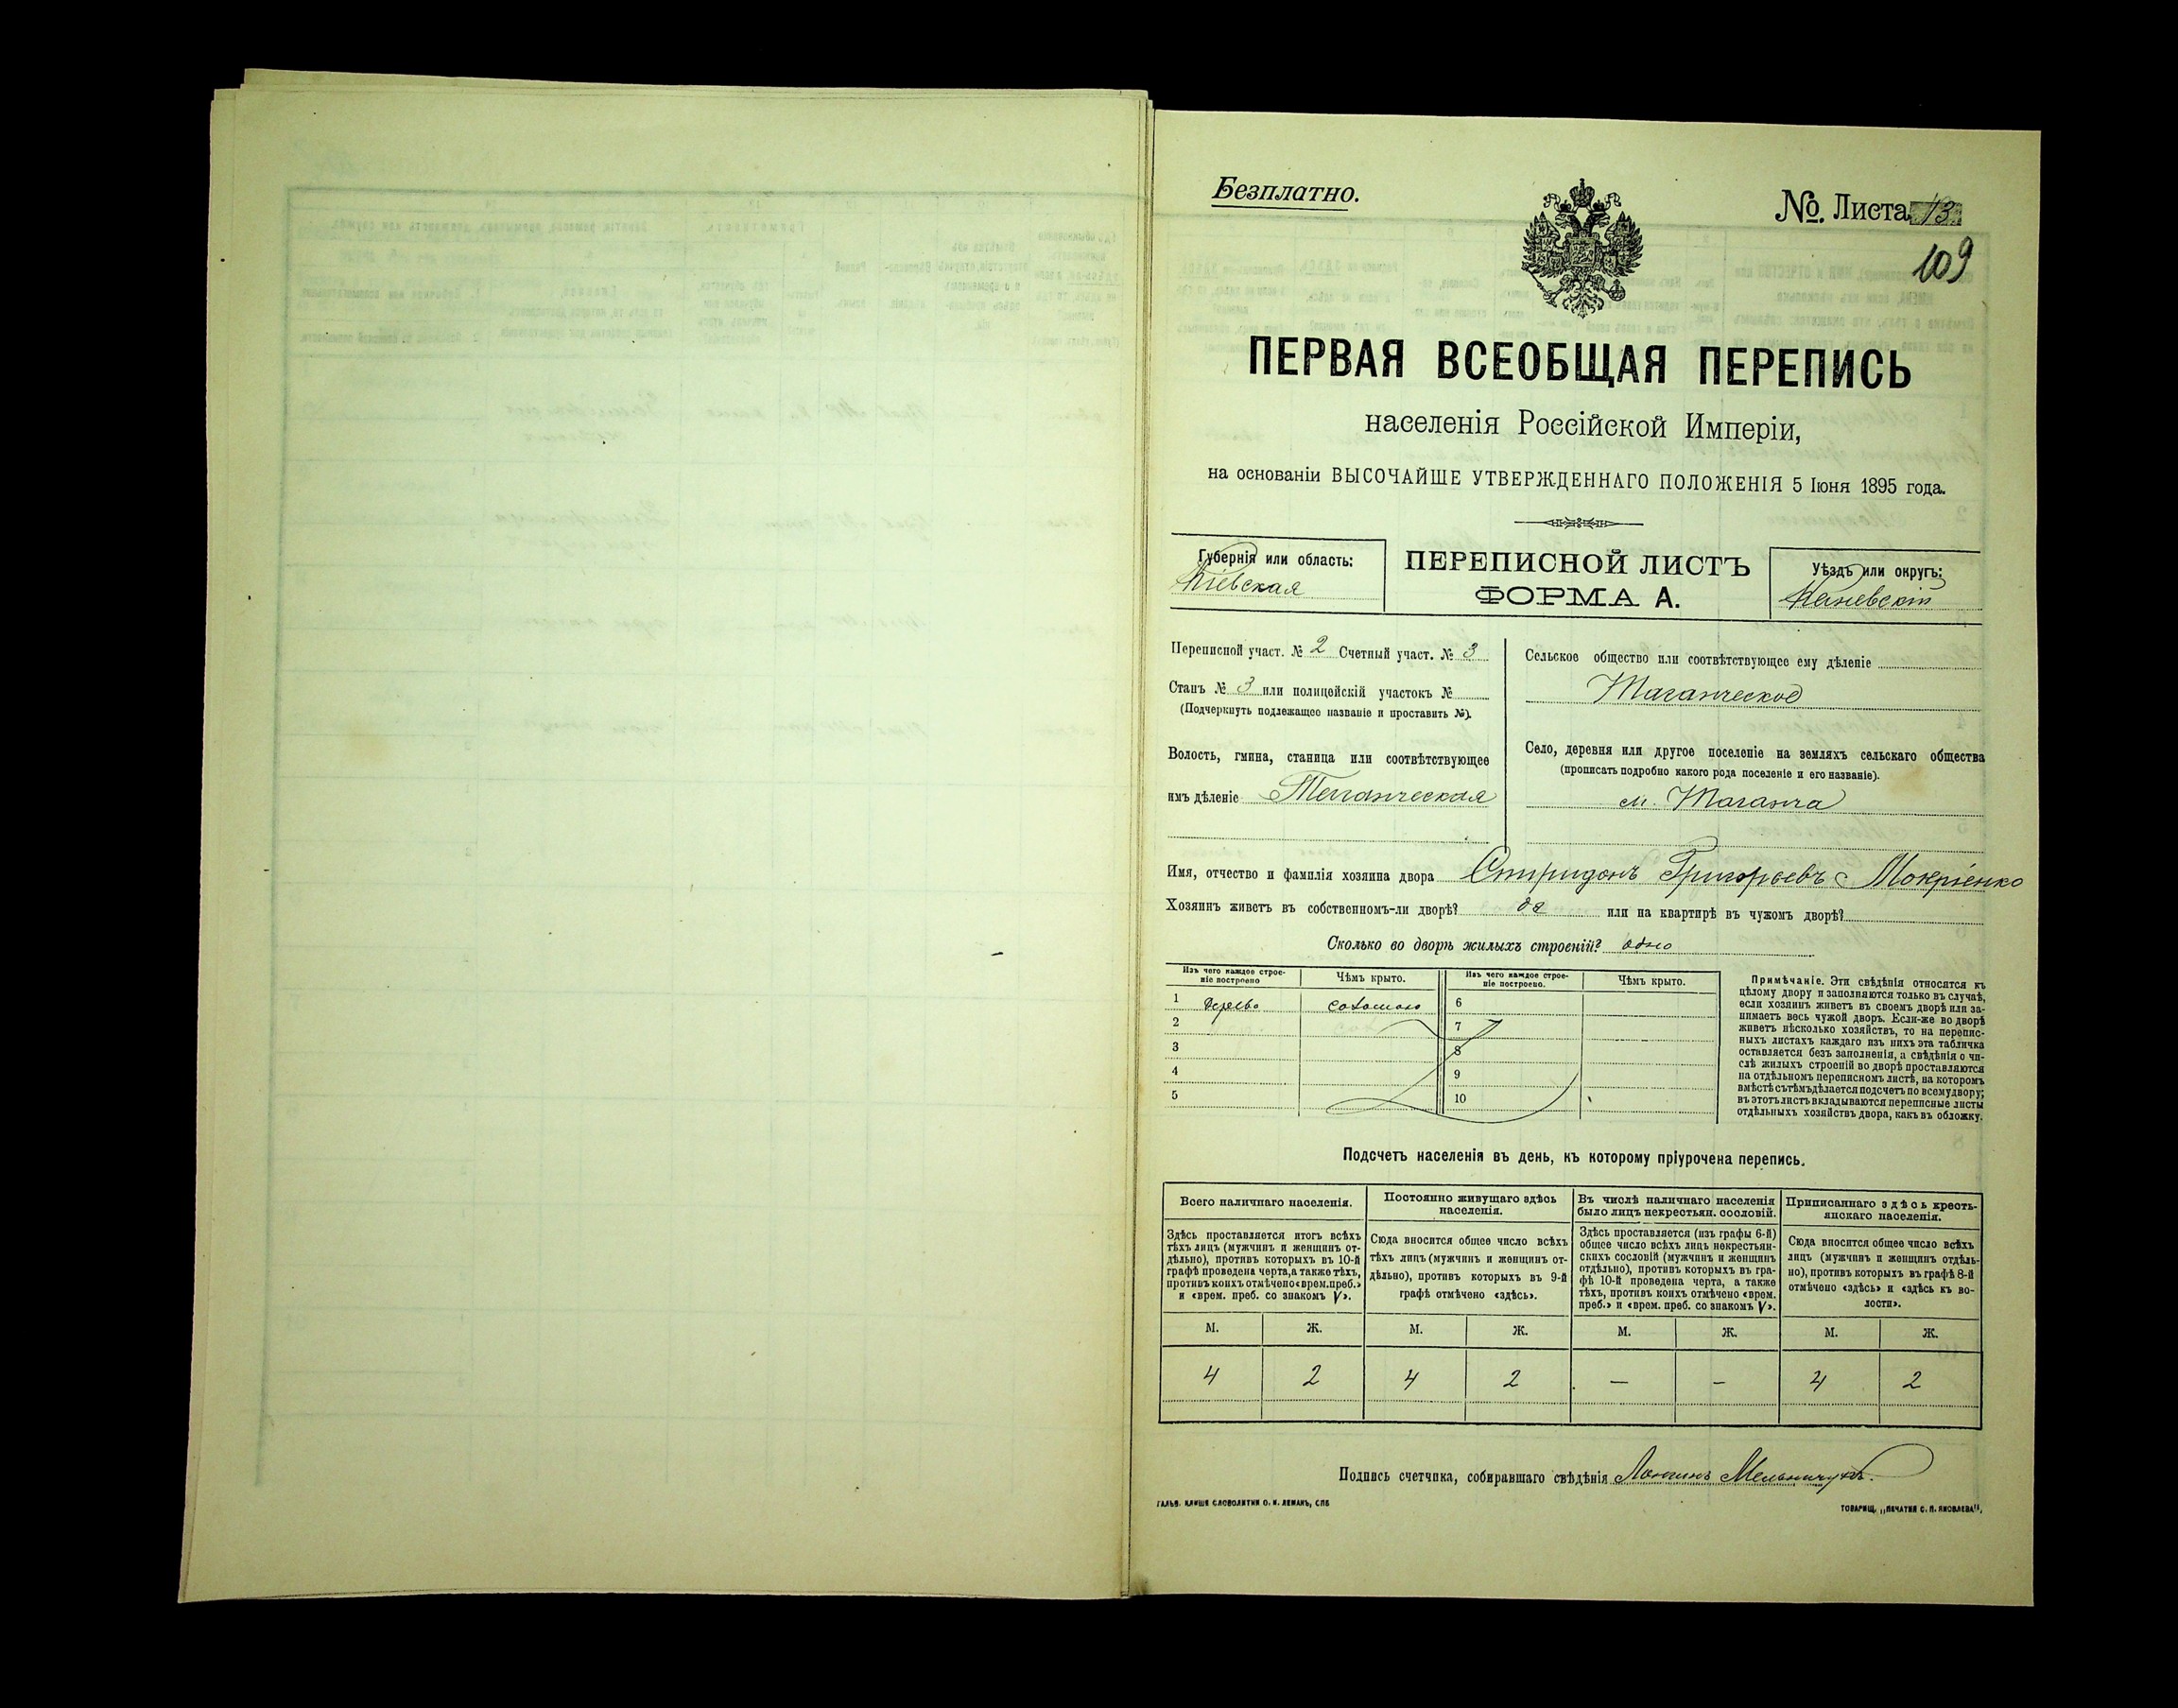 Безплатно.
№. Листа 13
109
ПЕРВАЯ ВСЕОБЩАЯ ПЕРЕПИСЬ
населенія Россійской Имперіи,
на основаніи ВЫСОЧАЙШЕ УТВЕРЖДЕННАГО ПОЛОЖЕНІЯ 5 Іюня 1895 года.
Губернія или область:
Кіевская
ПЕРЕПИСНОЙ ЛИСТЪ
ФОРМА А.
Уѣздъ или округъ:
Каневскій
Переписной участ. № 2 Счетный участ. № 3
Станъ № 3 или полицейскій участокъ №
(Подчеркнуть подлежащее названіе и проставить №).
Волость, гмина, станица или соотвѣтствующее
имъ дѣленіе Таганческая
Сельское общество или соотвѣтствующее ему дѣленіе
Таганческое
Село, деревня или другое поселеніе на земляхъ сельскаго общества
(прописать подробно какого рода поселеніе и его названіе).
м. Таганча
Имя, отчество и фамилія хозяина двора Спиридонъ Григорьевъ Мокріенко
Хозяинъ живетъ въ собственномъ-ли дворѣ? да или на квартирѣ въ чужомъ дворѣ?
Сколько во дворѣ жилыхъ строеній? одно
Изъ чего каждое строе-
ніе построено
Чѣмъ крыто.
Изъ чего каждое строе-
ніе построено.
Чѣмъ крыто.
1 дерево соломою 6
2 7
3 8
4 9
5 10
Примѣчаніе. Эти свѣдѣнія относятся къ
цѣлому двору и заполняются только въ случаѣ,
если хозяинъ живетъ въ своемъ дворѣ или за-
нимаетъ весь чужой дворъ. Если-же во дворѣ
живетъ нѣсколько хозяйствъ, то на перепис-
ныхъ листахъ каждаго изъ нихъ эта табличка
оставляется безъ заполненія, а свѣдѣнія о чи-
слѣ жилыхъ строеній во дворѣ проставляются
на отдѣльномъ переписномъ листѣ, на которомъ
вмѣстѣ съ тѣмъ дѣлается подсчетъ по всему двору;
въ этотъ листъ вкладываются переписные листы
отдѣльныхъ хозяйствъ двора, какъ въ обложку.
Подсчетъ населенія въ день, къ которому пріурочена перепись.
Всего наличнаго населенія.
Здѣсь проставляется итогъ всѣхъ
тѣхъ лицъ (мужчинъ и женщинъ от-
дѣльно), противъ которыхъ въ 10-й
графѣ проведена черта, а также тѣхъ,
противъ коихъ отмѣчено «врем. преб.»
и «врем. преб. со знакомъ V».
Постоянно живущаго здѣсь
населенія.
Сюда вносится общее число всѣхъ
тѣхъ лицъ (мужчинъ и женщинъ от-
дѣльно), противъ которыхъ въ 9-й
графѣ отмѣчено «здѣсь».
Въ числѣ наличнаго населенія
было лицъ некрестьян. сословій.
Здѣсь проставляется (изъ графы 6-й)
общее число всѣхъ лицъ некрестьян-
скихъ сословій (мужчинъ и женщинъ
отдѣльно), противъ которыхъ въ гра-
фѣ 10-й проведена черта, а также
тѣхъ, противъ коихъ отмѣчено «врем.
преб.» и «врем. преб. со знакомъ V».
Приписаннаго здѣсь кресть-
янскаго населенія.
Сюда вносится общее число всѣхъ
лицъ (мужчинъ и женщинъ отдѣль-
но), противъ которыхъ въ графѣ 8-й
отмѣчено «здѣсь» и «здѣсь къ во-
лости».
М. Ж. М. Ж. М. Ж. М. Ж.
4 2 4 2 — — 4 2
Подпись счетчика, собиравшаго свѣдѣнія Лонгинъ Мельничукъ.
ГАЛЬВ. КЛИШЕ СЛОВОЛИТНИ О. И. ЛЕМАНЪ, СПБ
ТОВАРИЩ. „ПЕЧАТНЯ С. П. ЯКОВЛЕВА“,